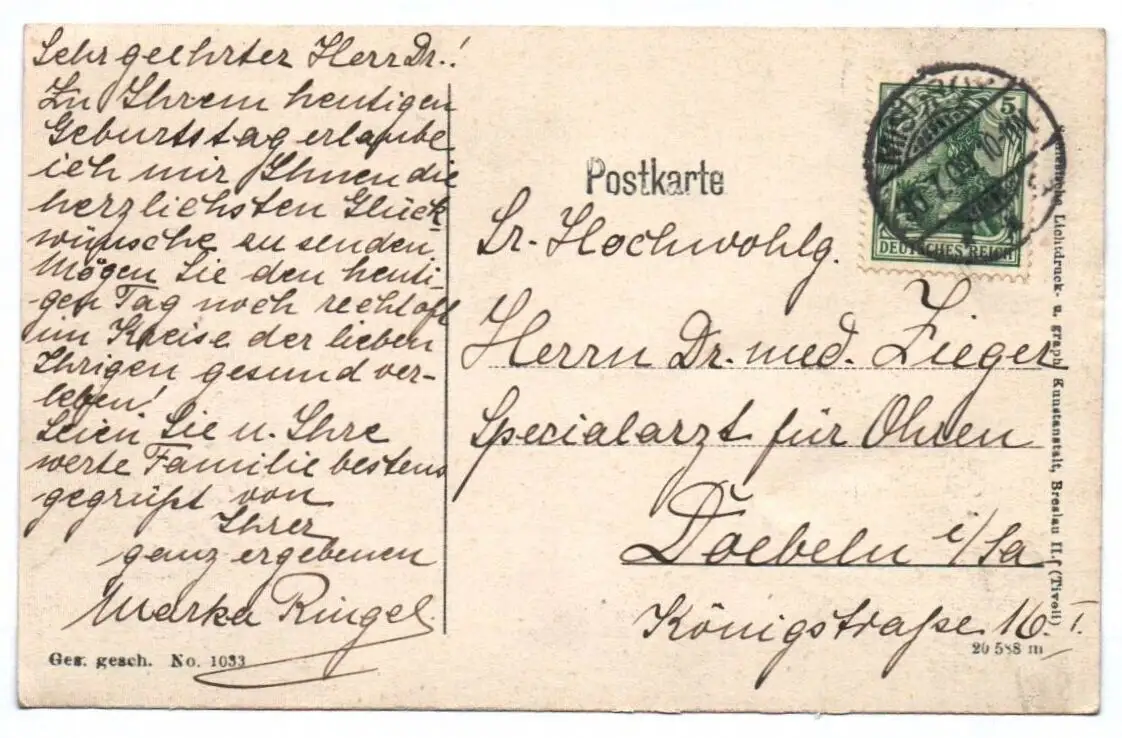 Sehr geehrter Herr Dr.!
Zu Ihrem heutigen
Geburtstag erlaube
ich mir Ihnen die
herzlichsten Glück
wünsche zu senden.
Mögen Sie den heuti-
gen Tag noch recht oft
im Kreise der lieben
Ihrigen gesund ver-
leben!
Seien Sie u. Ihre
werte Familie bestens
gegrüßt von
Ihrer
ganz ergebenen
Ringel
Ges. gesch. No. 1033
Postkarte
Sr. Hochwohlg.
Herrn Dr. med. Zieger
Spezialarzt für Ohren
Doebeln i/Sa
Königstraße 16. I.
20 588 m
5
DEUTSCHES REICH
Lichtdruck- u. graph. Kunstanstalt, Breslau II. (Tivoli)